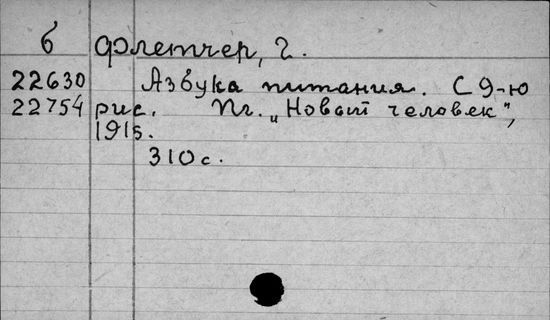 б Флетчер, Г.
22630 Азбука питания. С 9-ю
22754 рис. Пг. „Новый человек",
1915.
310 с.